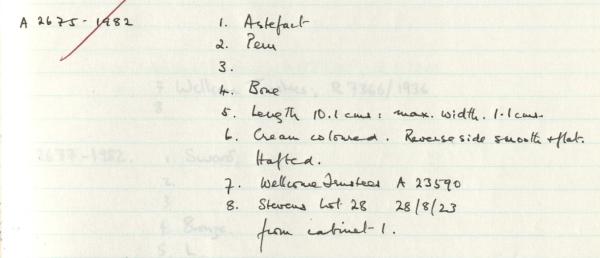 A 2675-1982 1. Astefact
2. Peru
3.
4. Bone
5. Length 10.1 cms: max. width. 1.1 cms.
6. Cream coloured. Reverse side smooth + flat.
Hafted.
7. Wellcome Trustees A 23590
8. Stevens Lot 28 28/8/23
from cabinet 1.